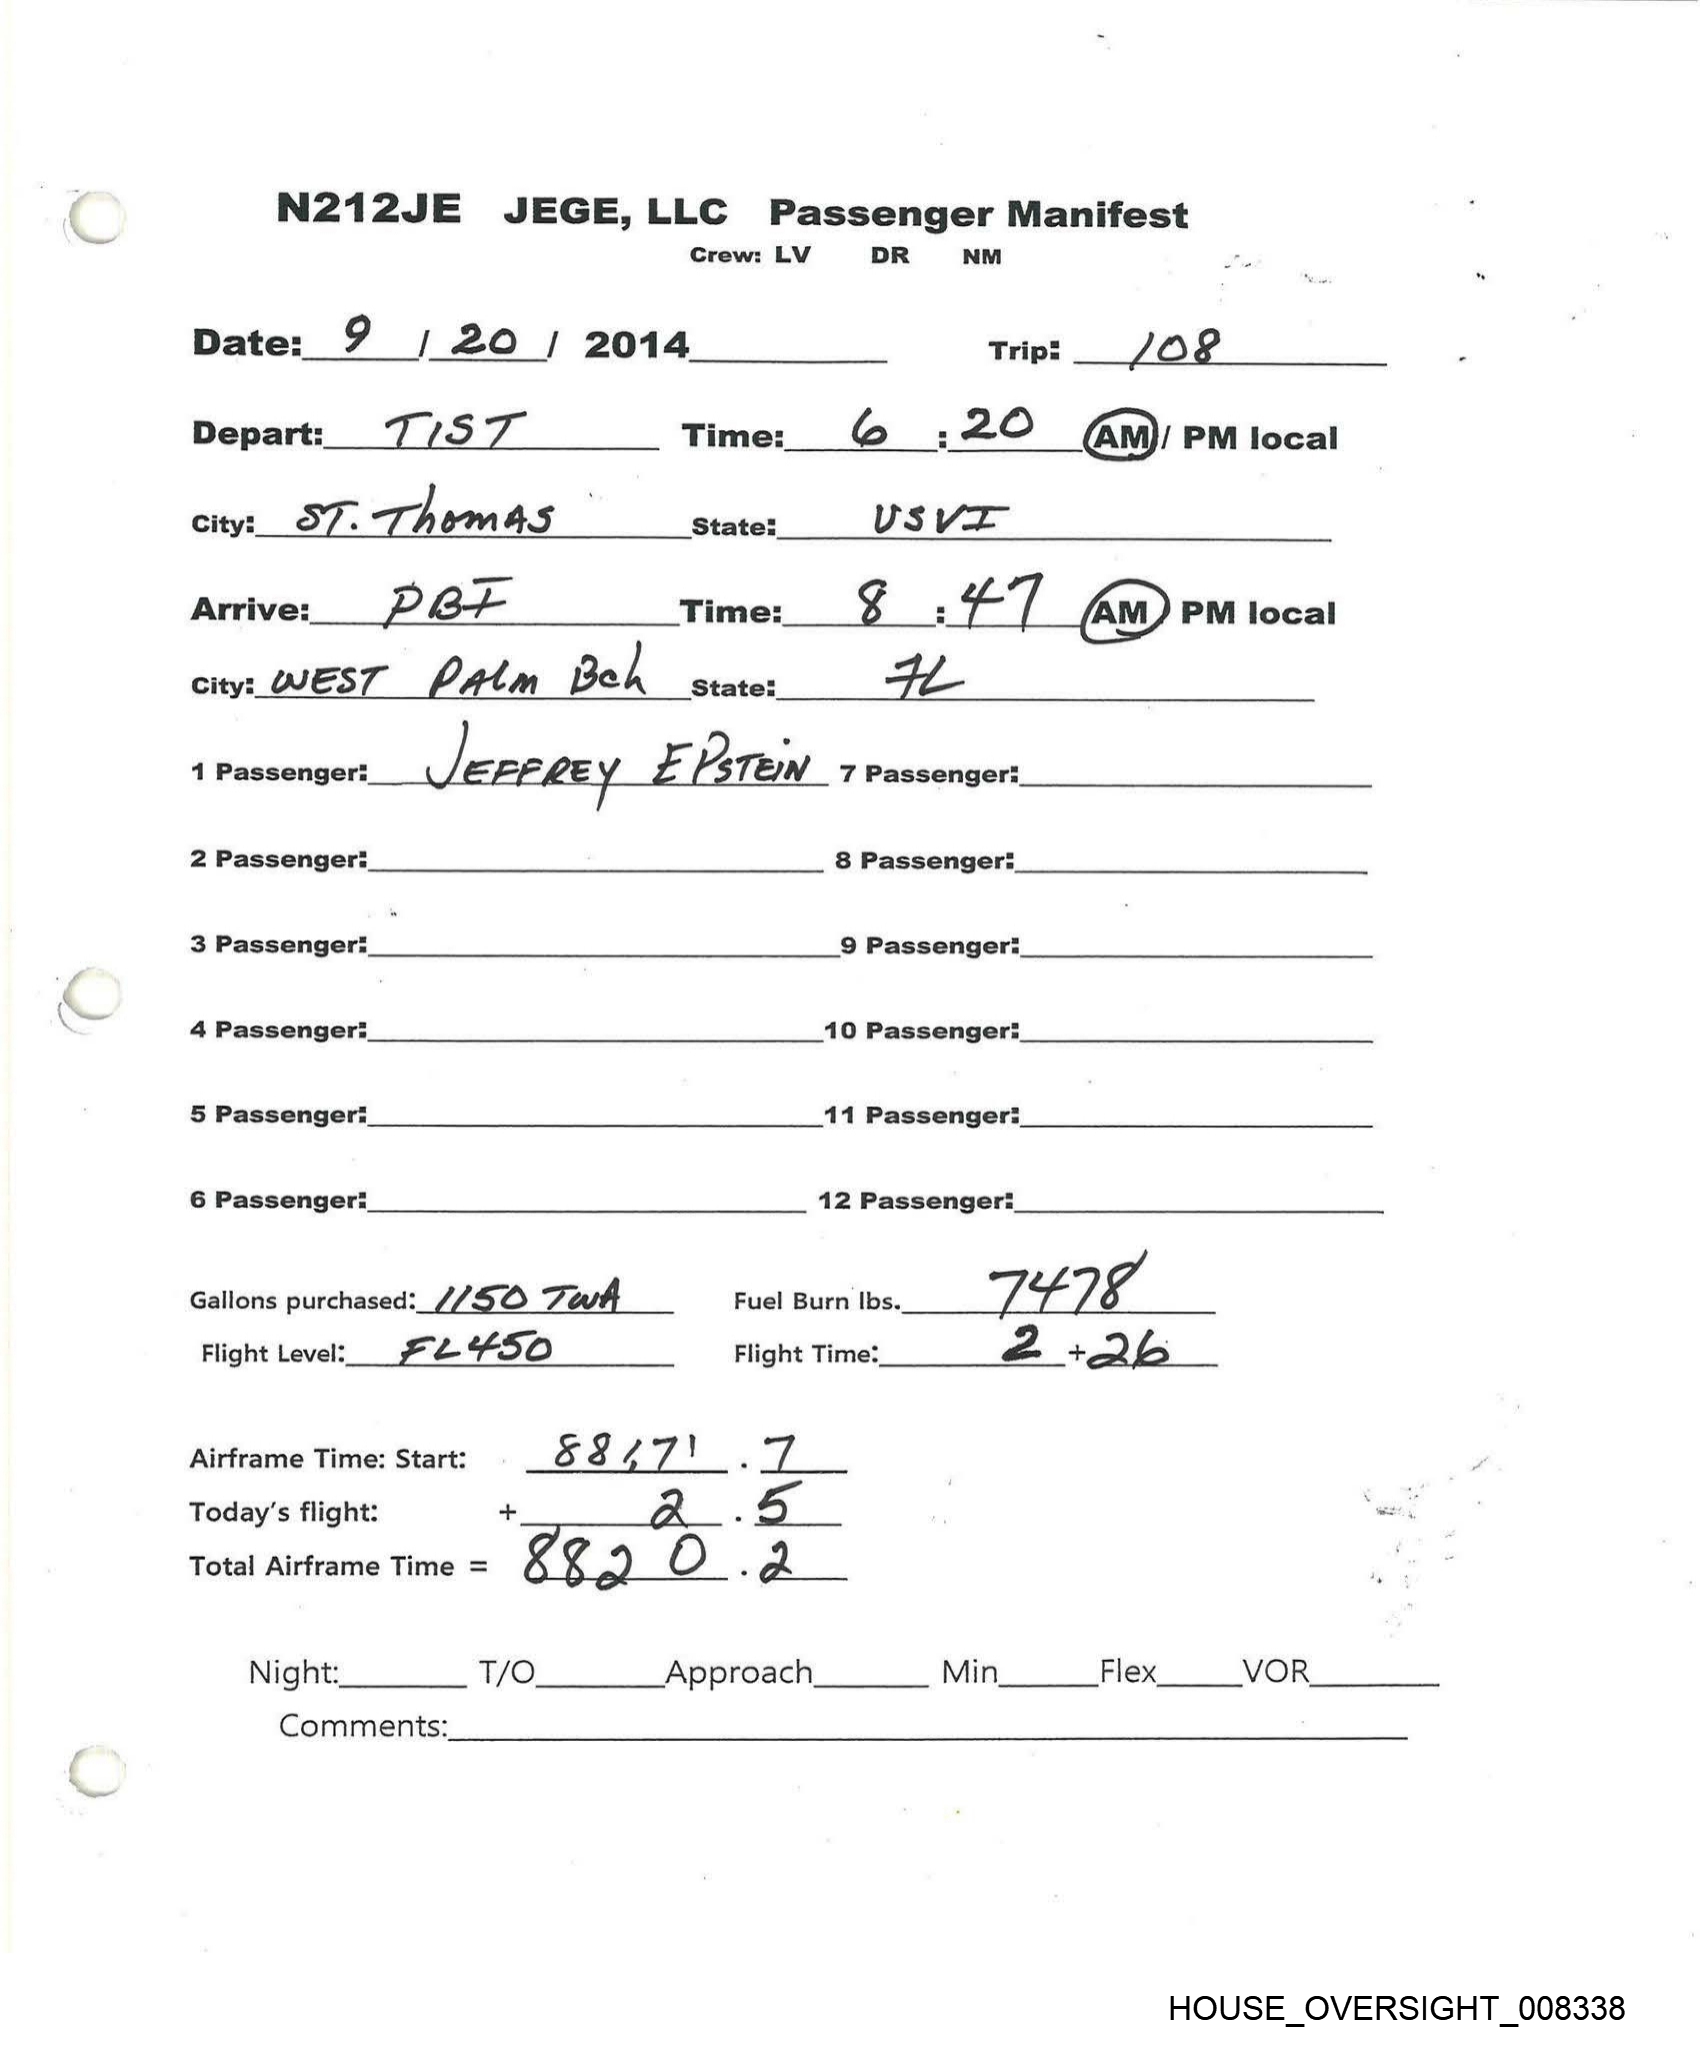 N212JE JEGE, LLC Passenger Manifest
Crew: LV DR NM
Date: 9 / 20 / 2014 Trip: 108
Depart: TIST Time: 6 : 20 AM / PM local
City: ST. Thomas State: USVI
Arrive: PBI Time: 8 : 47 AM PM local
City: WEST PAlm Bch State: FL
1 Passenger: JEFFREY EPSTEIN 7 Passenger:
2 Passenger: 8 Passenger:
3 Passenger: 9 Passenger:
4 Passenger: 10 Passenger:
5 Passenger: 11 Passenger:
6 Passenger: 12 Passenger:
Gallons purchased: 1150 TWA Fuel Burn lbs. 7478
Flight Level: FL450 Flight Time: 2 + 26
Airframe Time: Start: . 7
Today's flight: + 2 . 5
Total Airframe Time = 8820 . 2
Night: T/O Approach Min Flex VOR
Comments:
HOUSE_OVERSIGHT_008338